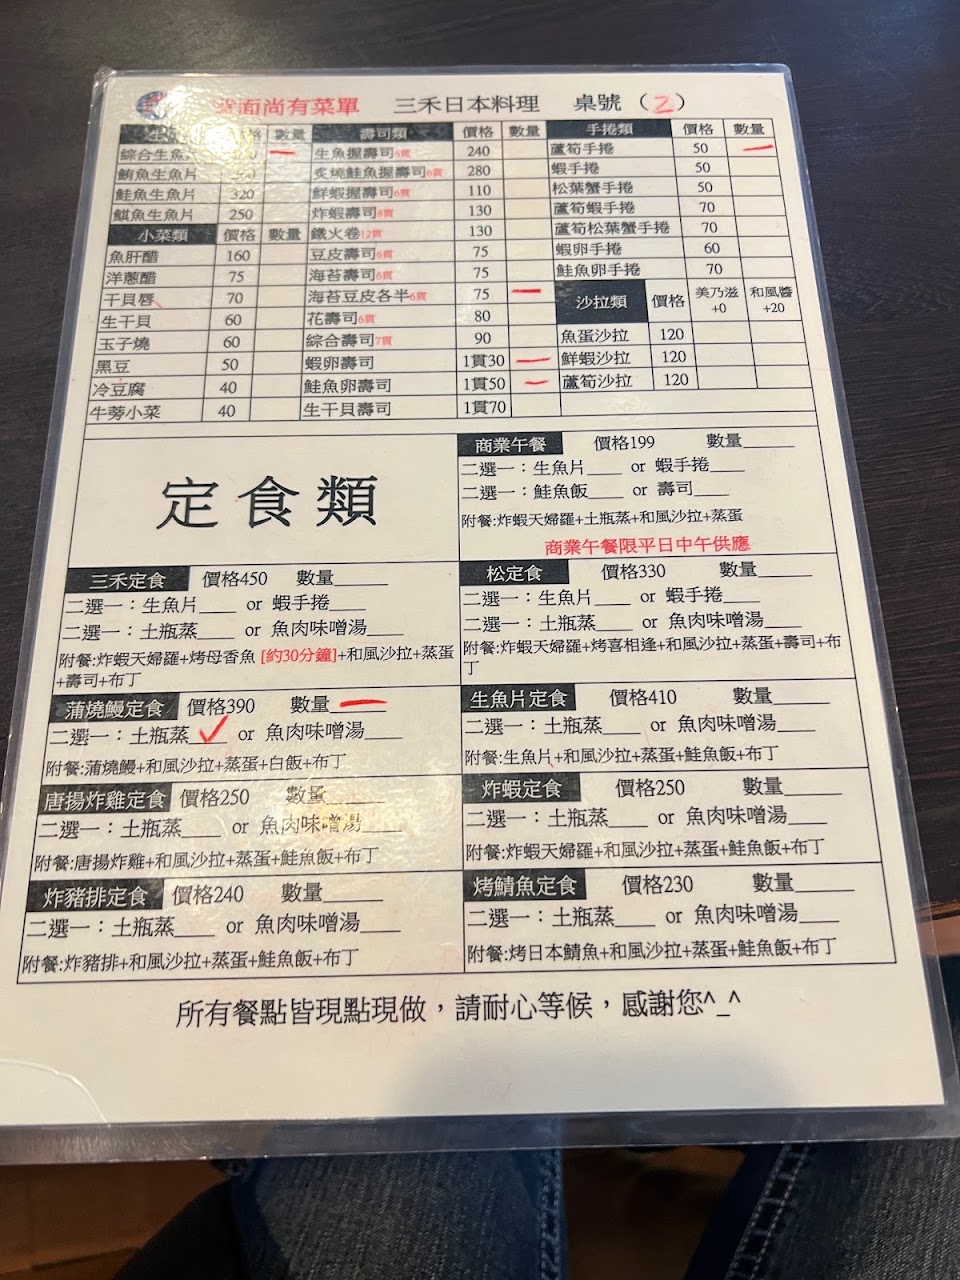 背面尚有菜單 三禾日本料理 桌號（2）
價格 數量 壽司類 價格 數量 手捲類 價格 數量
綜合生魚片 一 生魚握壽司6貫 240 蘆筍手捲 50 一
鮪魚生魚片 炙燒鮭魚握壽司6貫 280 蝦手捲 50
鮭魚生魚片 320 鮮蝦握壽司6貫 110 松葉蟹手捲 50
旗魚生魚片 250 炸蝦壽司8貫 130 蘆筍蝦手捲 70
小菜類 價格 數量 鐵火卷12貫 130 蘆筍松葉蟹手捲 70
魚肝醋 160 豆皮壽司6貫 75 蝦卵手捲 60
洋蔥醋 75 海苔壽司6貫 75 鮭魚卵手捲 70
干貝唇 70 海苔豆皮各半6貫 75 一 沙拉類 價格 美乃滋+0 和風醬+20
生干貝 60 花壽司6貫 80 魚蛋沙拉 120
玉子燒 60 綜合壽司7貫 90 鮮蝦沙拉 120
黑豆 50 蝦卵壽司 1貫30 一 蘆筍沙拉 120
冷豆腐 40 鮭魚卵壽司 1貫50 一
牛蒡小菜 40 生干貝壽司 1貫70
定食類
商業午餐 價格199 數量_____
二選一：生魚片___ or 蝦手捲___
二選一：鮭魚飯___ or 壽司___
附餐:炸蝦天婦羅+土瓶蒸+和風沙拉+蒸蛋
商業午餐限平日中午供應
三禾定食 價格450 數量_____
二選一：生魚片___ or 蝦手捲___
二選一：土瓶蒸___ or 魚肉味噌湯___
附餐:炸蝦天婦羅+烤母香魚 [約30分鐘]+和風沙拉+蒸蛋
+壽司+布丁
松定食 價格330 數量_____
二選一：生魚片___ or 蝦手捲___
二選一：土瓶蒸___ or 魚肉味噌湯___
附餐:炸蝦天婦羅+烤喜相逢+和風沙拉+蒸蛋+壽司+布
丁
蒲燒鰻定食 價格390 數量 一
二選一：土瓶蒸 ✓ or 魚肉味噌湯___
附餐:蒲燒鰻+和風沙拉+蒸蛋+白飯+布丁
生魚片定食 價格410 數量_____
二選一：土瓶蒸___ or 魚肉味噌湯___
附餐:生魚片+和風沙拉+蒸蛋+鮭魚飯+布丁
唐揚炸雞定食 價格250 數量_____
二選一：土瓶蒸___ or 魚肉味噌湯___
附餐:唐揚炸雞+和風沙拉+蒸蛋+鮭魚飯+布丁
炸蝦定食 價格250 數量_____
二選一：土瓶蒸___ or 魚肉味噌湯___
附餐:炸蝦天婦羅+和風沙拉+蒸蛋+鮭魚飯+布丁
炸豬排定食 價格240 數量_____
二選一：土瓶蒸___ or 魚肉味噌湯___
附餐:炸豬排+和風沙拉+蒸蛋+鮭魚飯+布丁
烤鯖魚定食 價格230 數量_____
二選一：土瓶蒸___ or 魚肉味噌湯___
附餐:烤日本鯖魚+和風沙拉+蒸蛋+鮭魚飯+布丁
所有餐點皆現點現做，請耐心等候，感謝您^_^